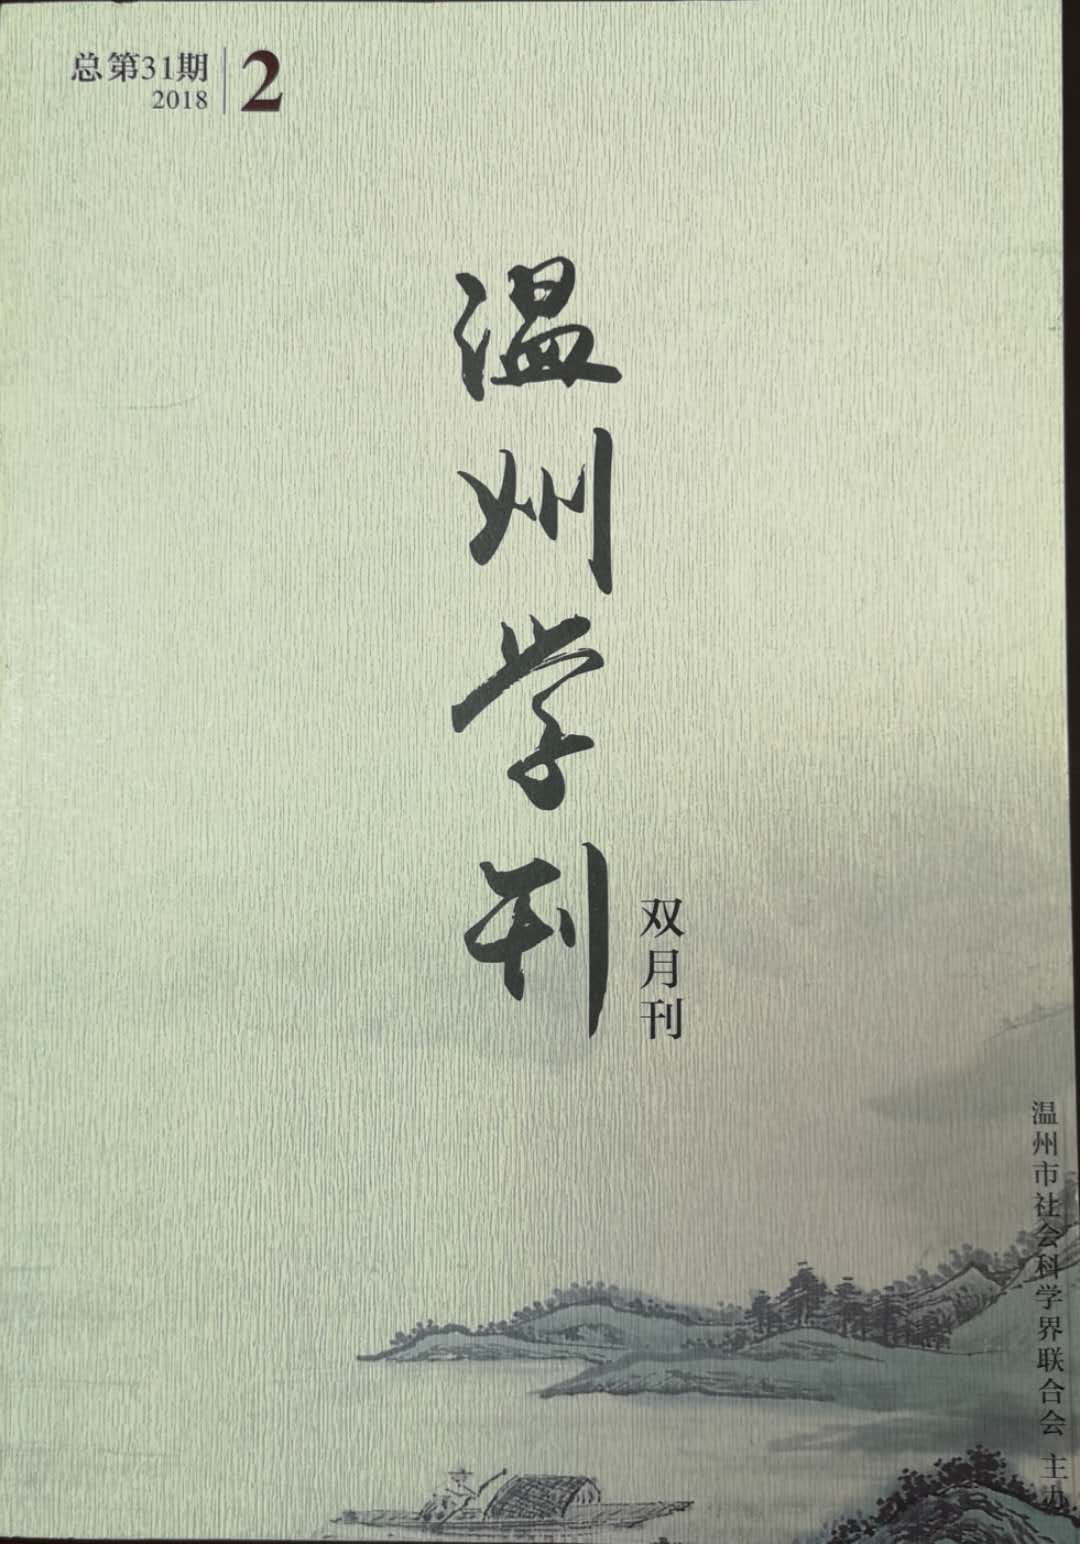 总第31期
2018
2
温州学刊
双月刊
温州市社会科学界联合会 主办